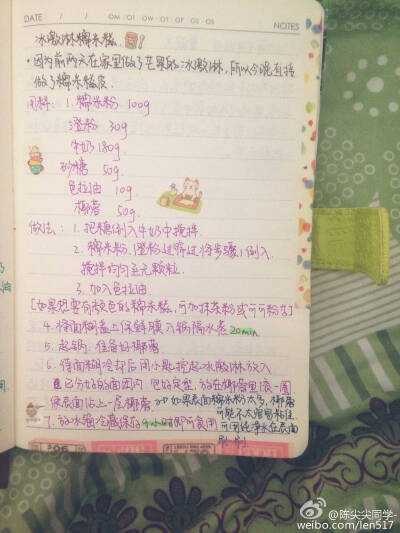 DATE / /
NOTES
冰激淋糯米糍
·因为前两天在家里做了芒果的冰激淋,所以今晚直接
做了糯米糍皮.
用料:1.糯米粉 100g
澄粉 30g
牛奶 180g
砂糖 50g
色拉油 10g
椰蓉 50g
做法:1.把糖倒入牛奶中搅拌
2.糯米粉、澄粉过筛过将步骤1倒入
搅拌均匀至无颗粒.
3.加入色拉油
[如果想要有颜色的糯米糍,可加抹茶粉或可可粉等]
4.将面糊盖上保鲜膜入锅隔水煮20min
5.起锅 准备好椰蓉
6.待面糊冷却后用小匙挖起冰激淋放入
已分好的面团内 包好定型,放在椰蓉里滚一圈
使表面沾上一层椰蓉.
如果表面糯米粉太多,椰蓉
可能不太容易粘住
可用纯净水在表面
刷一刷
7.放冰箱冷藏保存 小时即可食用
@陈尖尖同学-
weibo.com/len517